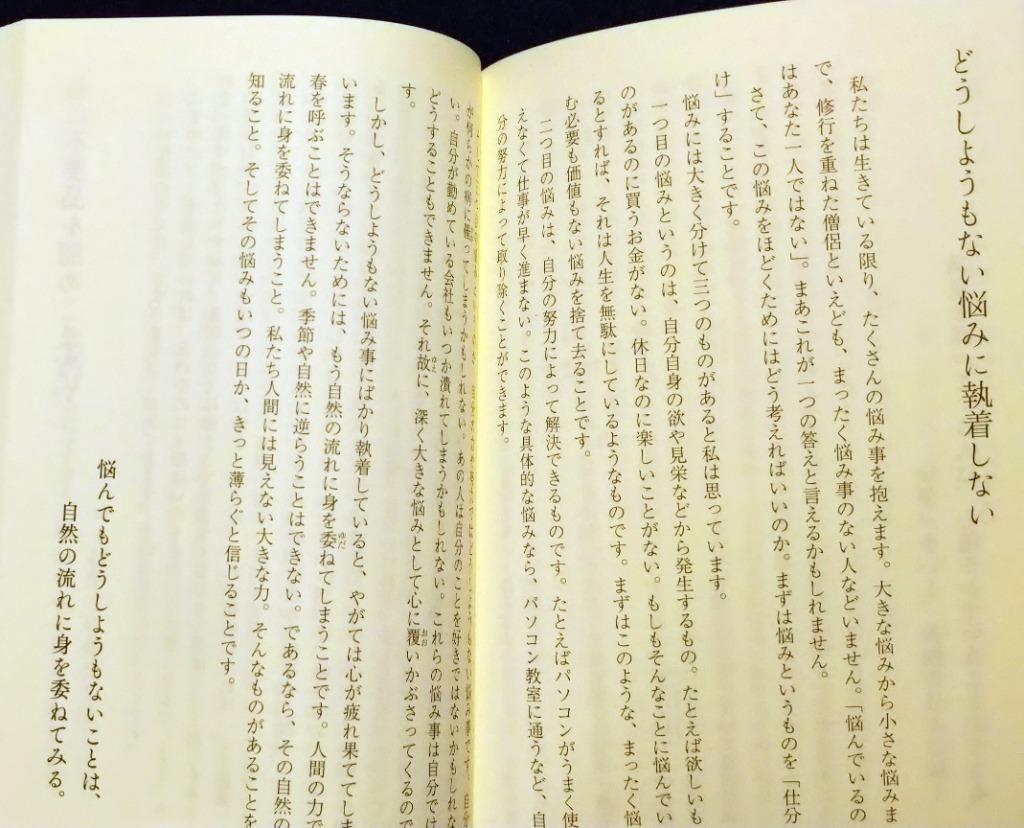 どうしようもない悩みに執着しない
私たちは生きている限り、たくさんの悩み事を抱えます。大きな悩みから小さな悩みま
で、修行を重ねた僧侶といえども、まったく悩み事のない人などいません。「悩んでいるの
はあなた一人ではない」。まあこれが一つの答えと言えるかもしれません。
さて、この悩みをほどくためにはどう考えればいいのか。まずは悩みというものを「仕分
け」することです。
悩みには大きく分けて三つのものがあると私は思っています。
一つ目の悩みというのは、自分自身の欲や見栄などから発生するもの。たとえば欲しいも
のがあるのに買うお金がない。休日なのに楽しいことがない。もしもそんなことに悩んでい
るとすれば、それは人生を無駄にしているようなものです。まずはこのような、まったく悩
む必要も価値もない悩みを捨て去ることです。
二つ目の悩みは、自分の努力によって解決できるものです。たとえばパソコンがうまく使
えなくて仕事が早く進まない。このような具体的な悩みなら、パソコン教室に通うなど、自
分の努力によって取り除くことができます。
ってしまうかもしれない。あの人は自分のことを好きではないかもしれな
い。自分が勤めている会社もいつか潰れてしまうかもしれない。これらの悩み事は自分では
どうすることもできません。それ故に、深く大きな悩みとして心に覆いかぶさってくるので
す。
しかし、どうしようもない悩み事にばかり執着していると、やがては心が疲れ果ててしま
います。そうならないためには、もう自然の流れに身を委ねてしまうことです。人間の力で
春を呼ぶことはできません。季節や自然に逆らうことはできない。であるなら、その自然の
流れに身を委ねてしまうこと。私たち人間には見えない大きな力。そんなものがあることを
知ること。そしてその悩みもいつの日か、きっと薄らぐと信じることです。
悩んでもどうしようもないことは、
自然の流れに身を委ねてみる。